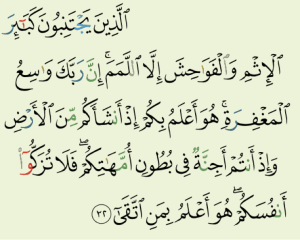 ٱلَّذِينَ يَجۡتَنِبُونَ كَبَٰٓئِرَ
ٱلۡإِثۡمِ وَٱلۡفَوَٰحِشَ إِلَّا ٱللَّمَمَۚ إِنَّ رَبَّكَ وَٰسِعُ
ٱلۡمَغۡفِرَةِۚ هُوَ أَعۡلَمُ بِكُمۡ إِذۡ أَنشَأَكُم مِّنَ ٱلۡأَرۡضِ
وَإِذۡ أَنتُمۡ أَجِنَّةٞ فِي بُطُونِ أُمَّهَٰتِكُمۡۖ فَلَا تُزَكُّوٓاْ
أَنفُسَكُمۡۖ هُوَ أَعۡلَمُ بِمَنِ ٱتَّقَىٰٓ ٣٢